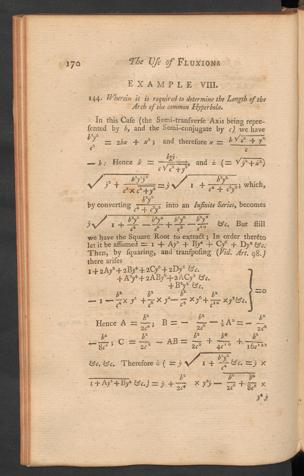 170 The Use of FLUXIONS
EXAMPLE VIII.
144. Wherein it is required to determine the Length of the
Arch of the common Hyperbola.
In this Case (the Semi-transverse Axis being repre-
sented by b, and the Semi-conjugate by c) we have
b²y²/c² = 2bx + x²; and therefore x = b√(c² + y²)/c
— b; Hence ẋ = byẏ/c√(c²+y²), and ż (= √(ẏ²+ẋ²)
√(ẏ² + b²y²ẏ²/(c² × c²+y²)) = ẏ√(1 + b²y²/(c⁴ + c²y²)); which,
by converting b²y²/(c⁴ + c²y²) into an Infinite Series, becomes
ẏ√(1 + b²y²/c⁴ — b²y⁴/c⁶ + b²y⁶/c⁸ — &c. But still
we have the Square Root to extract; In order thereto
let it be assumed = 1 + Ay² + By⁴ + Cy⁶ + Dy⁸ &c.
Then, by squaring, and transposing (Vid. Art. 98.)
there arises
1+2Ay²+2By⁴+2Cy⁶+2Dy⁸ &c.
+A²y⁴+2ABy⁶+2ACy⁸ &c.
+B²y⁸ &c.
=0
Hence A = b²/2c⁴; B = —
&c. &c. Therefore ż (= ẏ√(1 + b²y²/c⁴ &c. = ẏ ×
1+Ay²+By⁴ &c.) = ẏ + b²/2c⁴ × y²ẏ —
y⁴ẏ